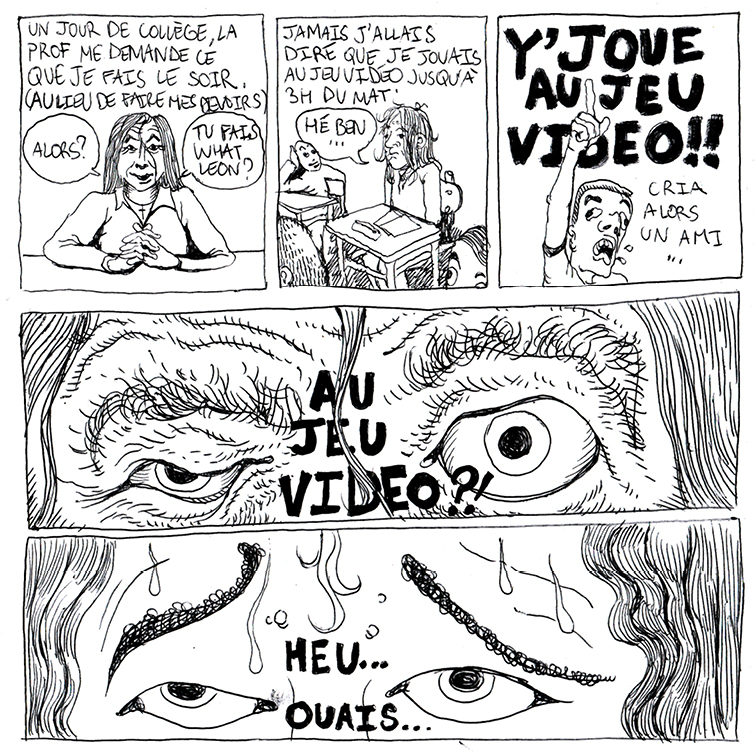 UN JOUR DE COLLÈGE, LA
PROF ME DEMANDE CE
QUE JE FAIS LE SOIR.
(AU LIEU DE FAIRE MES DEVOIRS)
ALORS?
TU FAIS
WHAT
LEON?
JAMAIS J'ALLAIS
DIRE QUE JE JOUAIS
AU JEU VIDEO JUSQU'À
3H DU MAT'
HÉ BEN
...
Y'JOUE
AU JEU
VIDEO!!
CRIA
ALORS
UN AMI
...
AU
JEU
VIDEO?!
HEU...
OUAIS...